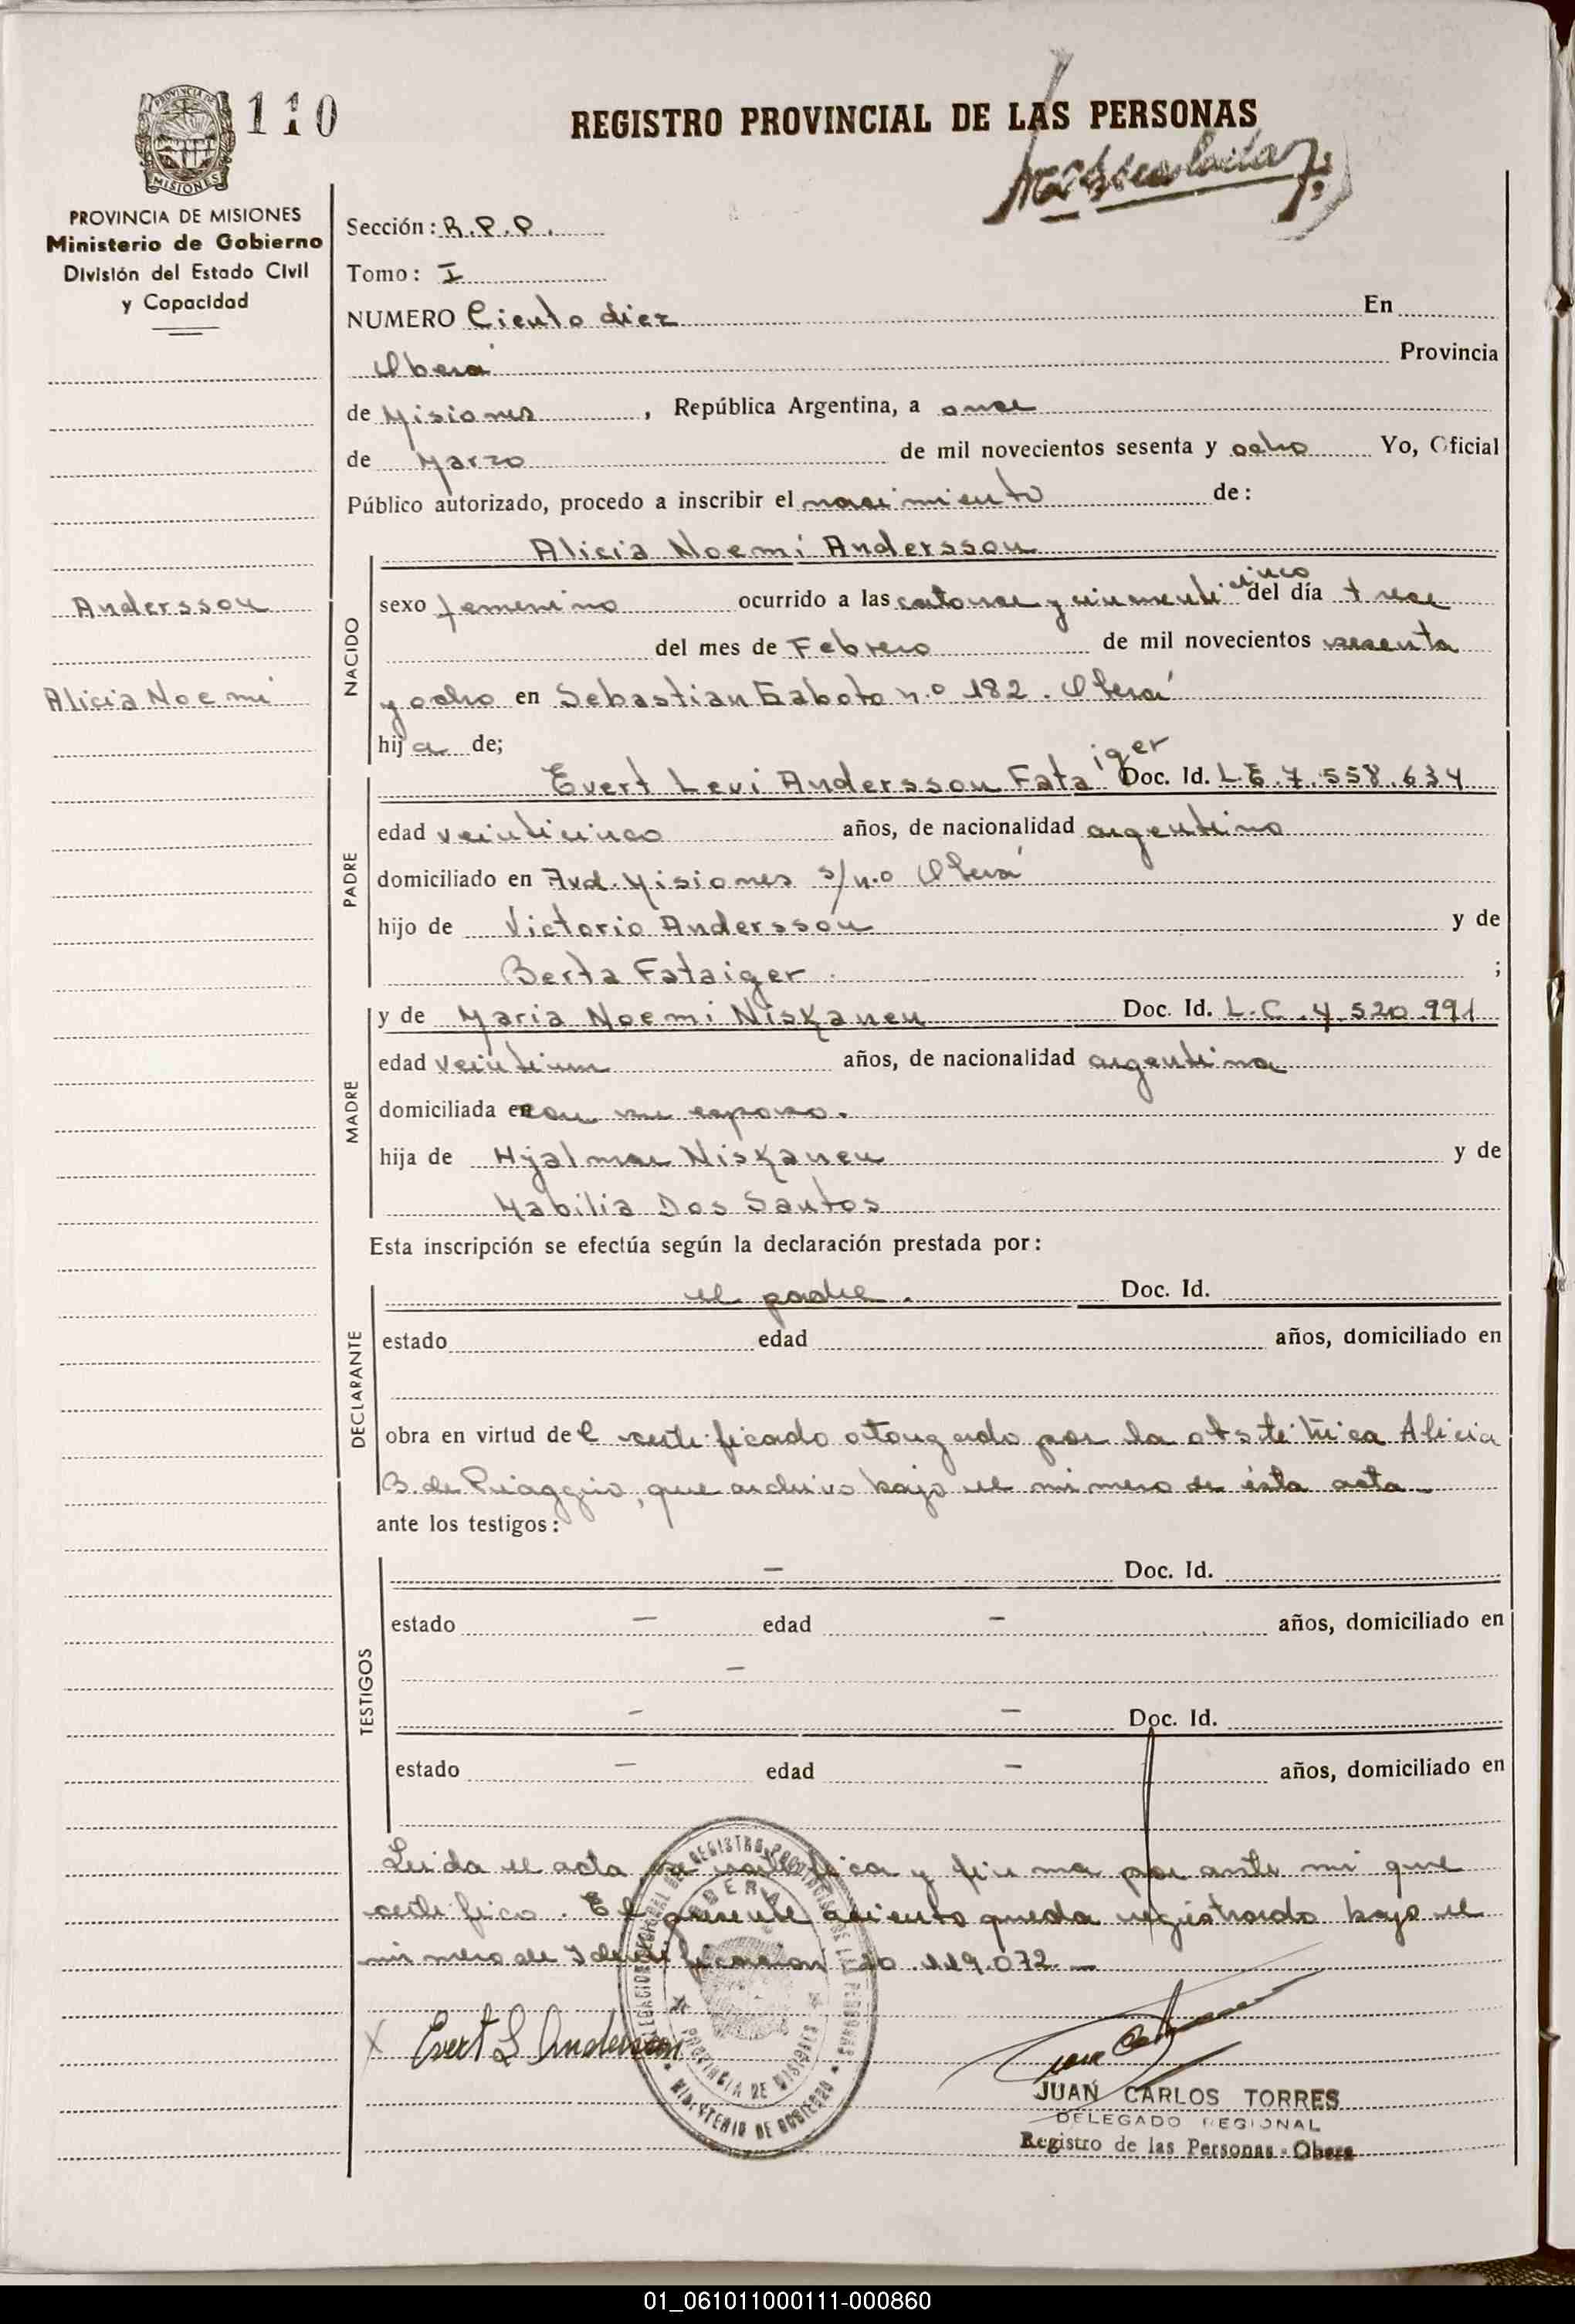 110
REGISTRO PROVINCIAL DE LAS PERSONAS
PROVINCIA DE MISIONES
Ministerio de Gobierno
División del Estado Civil
y Capacidad
Sección: R.P.P.
Tomo: I
NUMERO Ciento diez En
Oberá Provincia
de Misiones, República Argentina, a once
de Marzo de mil novecientos sesenta y ocho Yo, Oficial
Público autorizado, procedo a inscribir el nacimiento de:
Alicia Noemí Andersson
Andersson
Alicia Noemí
NACIDO
sexo femenino ocurrido a las catorce y cincuenticinco del día trece
del mes de Febrero de mil novecientos sesenta
y ocho en Sebastian Gaboto n.o 182. Oberá
hija de;
PADRE
Evert Levi Andersson Fataiger Doc. Id. L.E 7.558.634
edad veinticinco años, de nacionalidad argentino
domiciliado en Avd. Misiones s/n.o Oberá
hijo de Victorio Andersson y de
Berta Fataiger ;
MADRE
y de Maria Noemi Niskanen Doc. Id. L.C. 4.520.991
edad veintiun años, de nacionalidad argentina
domiciliada en con su esposo.
hija de Hjalmar Niskanen y de
Mabilia Dos Santos
Esta inscripción se efectúa según la declaración prestada por:
DECLARANTE
el padre. Doc. Id.
estado edad años, domiciliado en
obra en virtud del certificado otorgado por la obstétrica Alicia
B. de Piaggio, que archivo bajo el número de ésta acta.
ante los testigos:
TESTIGOS
— Doc. Id.
estado — edad — años, domiciliado en
—
— — Doc. Id.
estado — edad — años, domiciliado en
Leida el acta se ratifica y firma por ante mi que
certifico. El presente asiento queda registrado bajo el
número de Identificación 20.119.072.—
X Evert L Andersson
REGISTRO PROVINCIAL DE LAS PERSONAS
OBERA
PROVINCIA DE MISIONES
MINISTERIO DE GOBIERNO
JUAN CARLOS TORRES
DELEGADO REGIONAL
Registro de las Personas - Obera
01_061011000111-000860